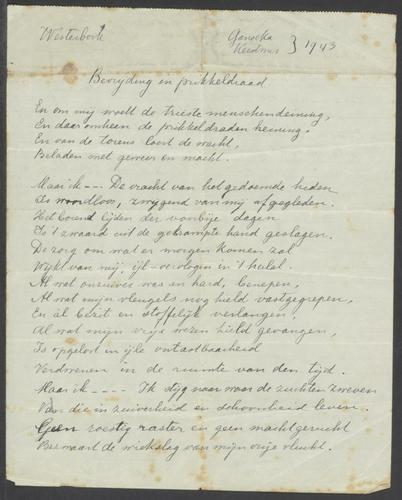 Westerbork
Ganoeka
Kerstmis } 1943
Bevrijding in prikkeldraad
En om mij woelt de trieste menschendeining,
En daaromheen de prikkeldraden heining.
En van de torens loert de wacht,
Beladen met geweer en macht.
Maar ik --- De vracht van het gedoemde heden
Is woordloos, zwijgend van mij afgegleden.
Het tijden der voorbije dagen
Is 't zwaard uit de gekrampte hand geslagen.
De zorg om wat er morgen komen zal
Wijkt van mij, ijl - vervlogen in 't heelal.
Al wat onzuiver was en hard, benepen,
Al wat mijn vleugels nog hield vastgegrepen,
En al bezit en stoffelijk verlangen,
Al wat mijn vrije wezen hield gevangen,
Is opgelost in ijle ontastbaarheid
Verdwenen in de ruimte van den tijd.
Maar ik ---- Ik stijg naar waar de zuchten zweven
Van die in zuiverheid en schoonheid leven.
Geen roestig raster en geen machtgerucht
Bezwaart de wiekslag van mijn vrije vlucht.